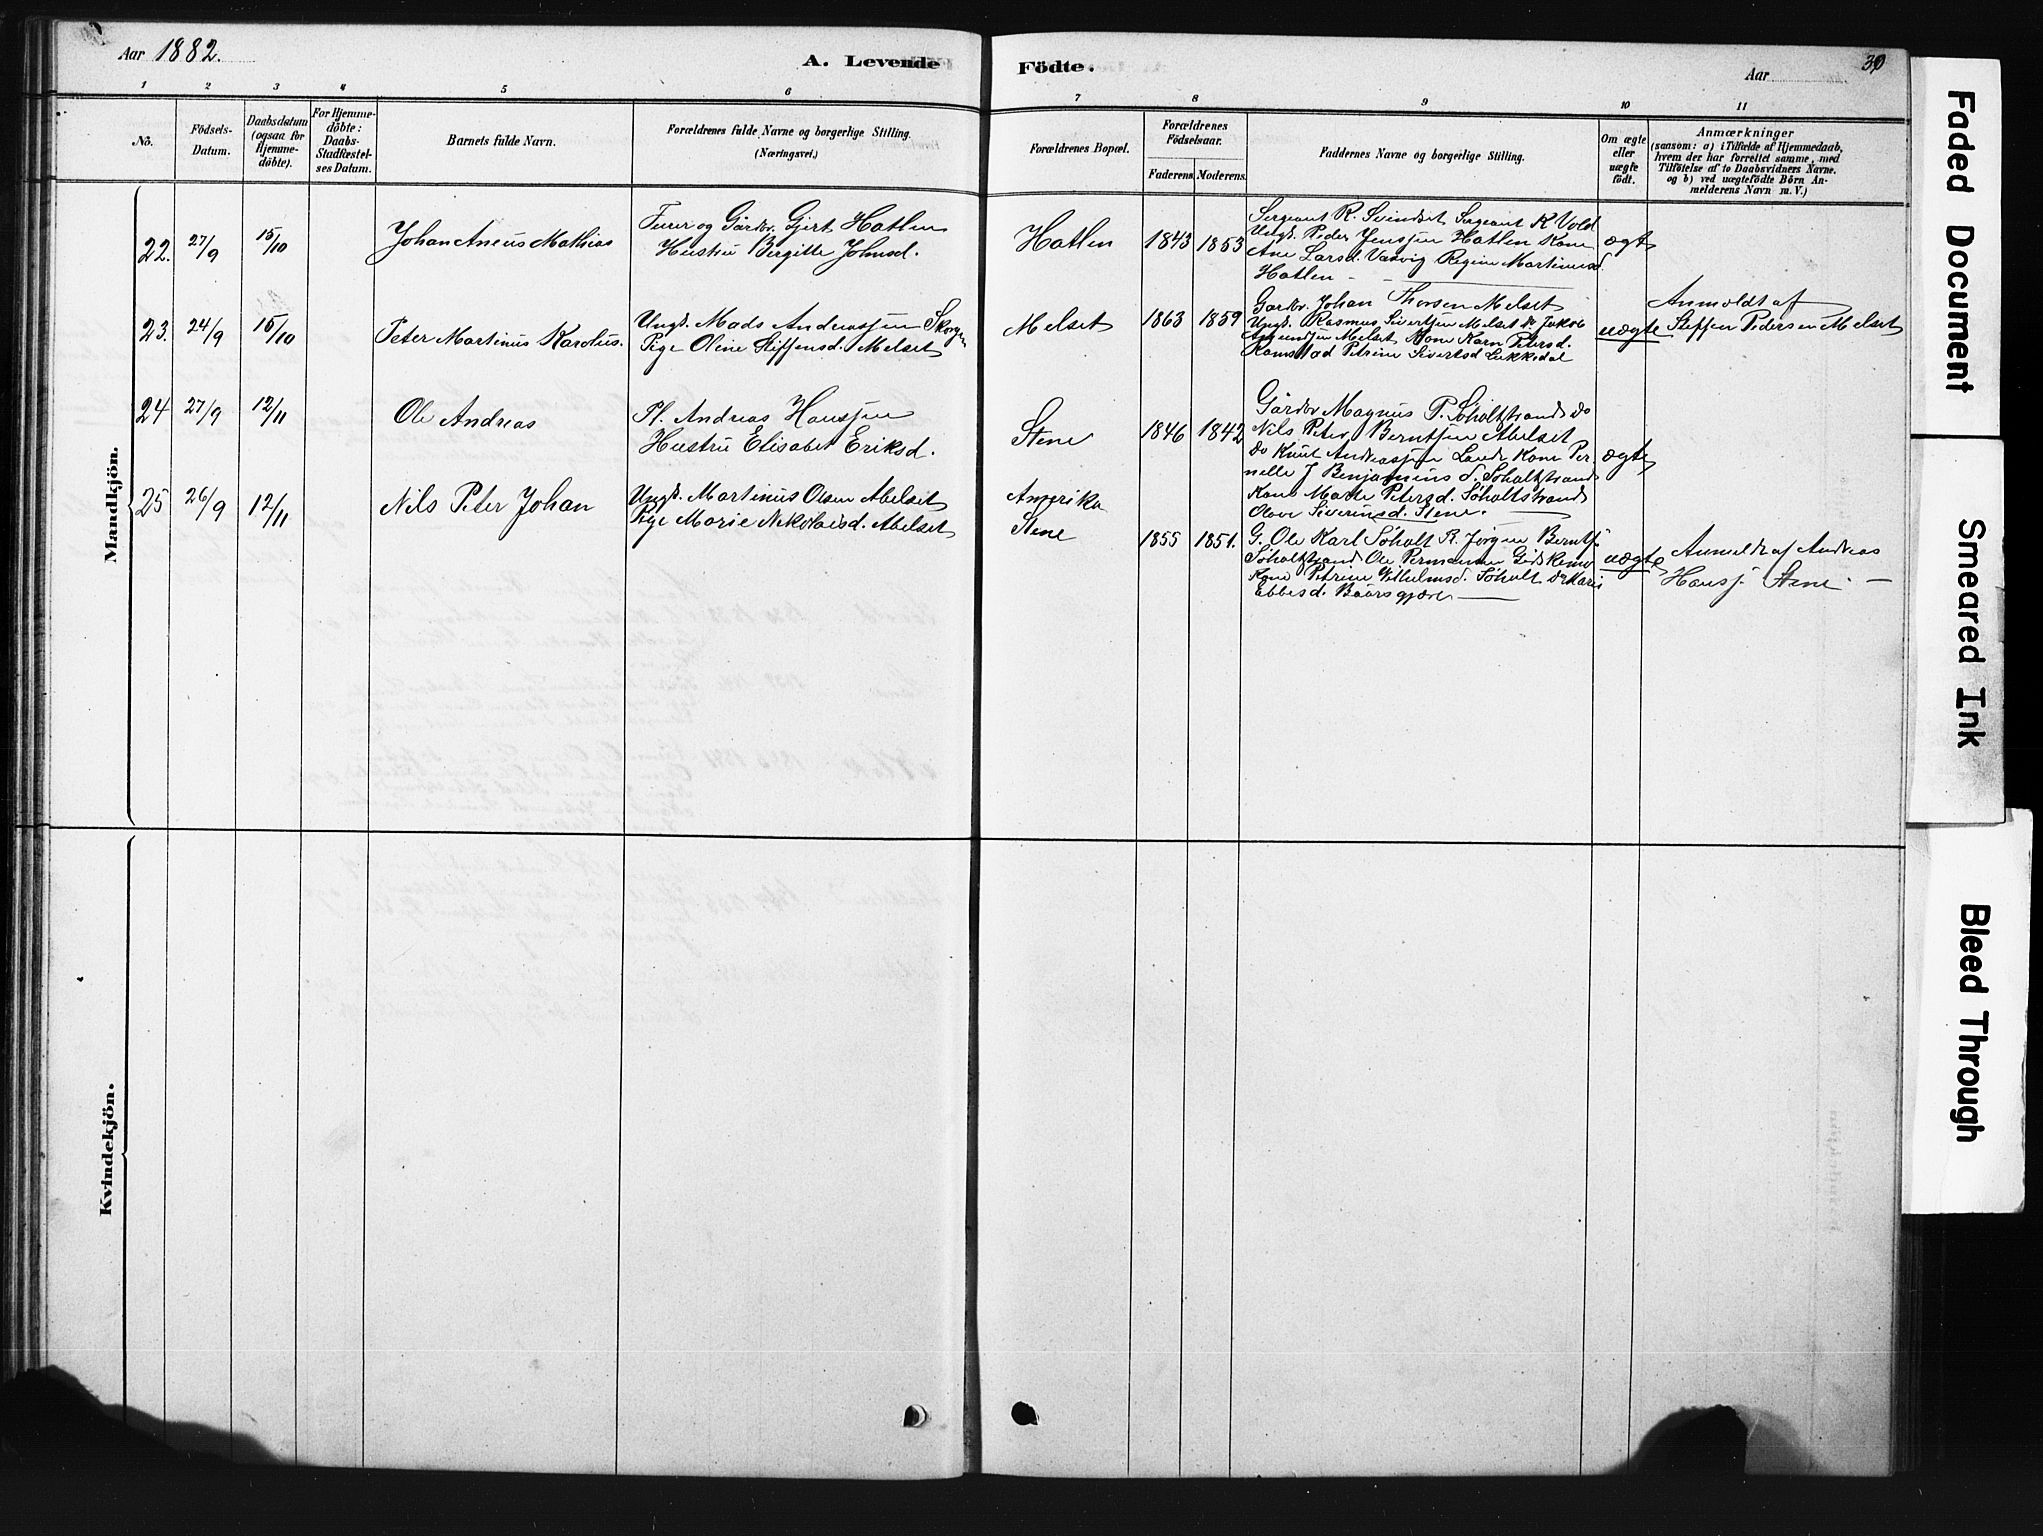 Aar 1882.
A. Levende
Födte.
Aar
30
1 2 3 4 5 6 7 8 9 10 11
No.
Födsels-
Datum.
Daabsdatum
(ogsaa for
Hjemme-
döbte).
For Hjemme-
döbte:
Daabs-
Stadfæstel-
ses Datum.
Barnets fulde Navn.
Forældrenes fulde Navne og borgerlige Stilling.
(Næringsvei.)
Forældrenes Bopæl.
Forældrenes
Födselsaar.
Faderens.
Moderens.
Faddernes Navne og borgerlige Stilling.
Om ægte
eller
uægte
födt.
Anmærkninger
(saasom: a) i Tilfælde af Hjemmedaab,
hvem der har forrettet samme, med
Tilföielse af to Daabsvidners Navne.
og b) ved uægtefödte Börn An-
melderens Navn m. V.)
Mandkjön.
22. 27/9 15/10
Johan Aneus Mathias
Furer og Gårdbr. Gjert Hatlen
Hustru Bergitte Johnsd.
Hatlen
1843 1853
Sergeant R. Svindset Sergeant K Vold
Ungk. Peder Jenssen Hatlen Kone
Ane Larsd. Vadvig Regine Martinusd.
Hatlen
ægte
23. 24/9 15/10
Peter Martinus Karolus.
Ungk. Mads Andreassen Skorgen
Pige Oline Steffensd. Melset
Melset
1863 1859
Gardbr. Johan Thorsen Melset
Ungk. Rasmus Sivertsen Melset do Jakob
Amundsen Melset Kone Karn Petersd.
Ramstad Petrine Sivertsd Lekkedal
uægte
Anmeldt af
Steffen Pedersen Melset
24 27/9 12/11
Ole Andreas
Pl. Andreas Hanssen
Hustru Elisabet Eriksd.
Stene
1846 1842
Gårdbr Magnus P. Søholtstrand do
Nils Peter Berntsen Abelset
do Knut Andreassen Lande Kone Per-
nelle J Benjaminsd. Søholtstrand
Kone Marte Petersd. Søholtstrand
Olave Siverinsd. Stene.
ægte
25 26/9 12/11
Nils Peter Johan
Ungk. Martinus Olsen Abelset
Pige Marie Nikolaisd. Abelset
Amerika
Stene
1855 1851.
G. Ole Karl Søholt K. Jørgen Bernts.
Søholtstrand Ole
Kone Petrine Vilhelmsd. Søholt do Kari
Ebbesd. Baarsgjære
uægte
Anmeldt af Andreas
Hanss. Stene
Kvindekjön.
Faded Document
Smeared Ink
Bleed Through